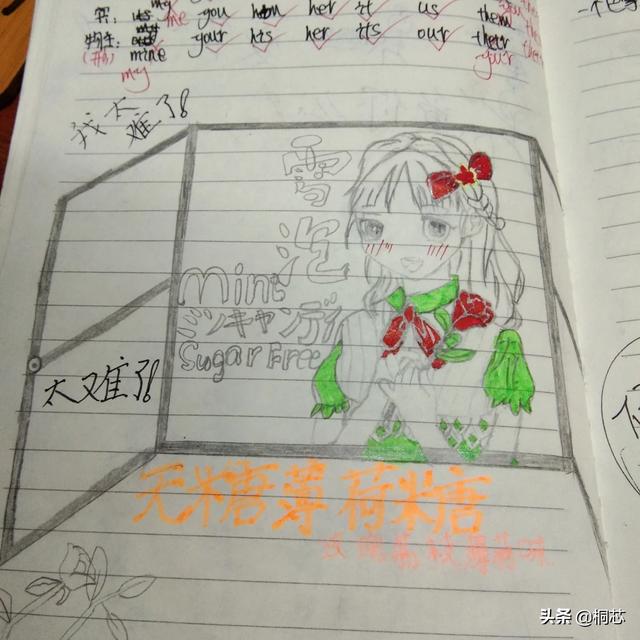 宾: me you him her it us them
物主: your his her its our their
(形) mine your
my
我太
难了!
雪
泡
mint
ミンキャンディ
Sugar Free
太难了!
无糖薄荷糖
头条 @桐芯